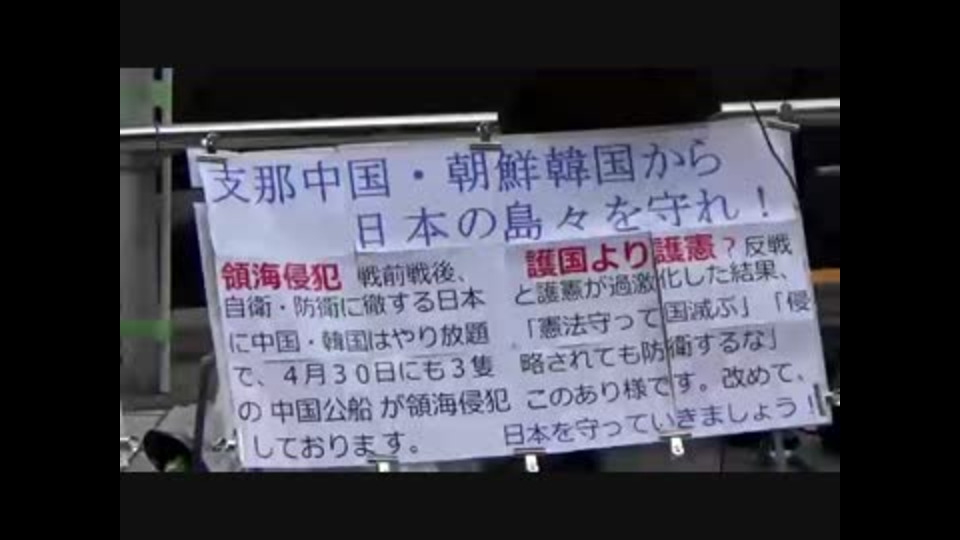 支那中国・朝鮮韓国から
日本の島々を守れ！
領海侵犯 戦前戦後、
自衛・防衛に徹する日本
に中国・韓国はやり放題
で、４月３０日にも３隻
の 中国公船 が領海侵犯
しております。
護国より護憲？反戦
と護憲が過激化した結果、
「憲法守って国滅ぶ」「侵
略されても防衛するな」
このあり様です。改めて、
日本を守っていきましょう！